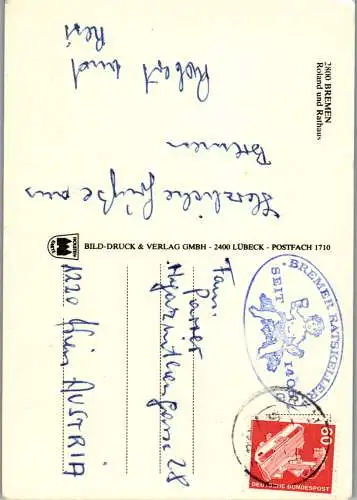 2800 BREMEN
Roland und Rathaus
Herzliche Grüße aus
Bremen
Robert und
Resi
HOLSTEN-
BILD-DRUCK & VERLAG GMBH - 2400 LÜBECK - POSTFACH 1710
· BREMER RATSKELLER ·
SEIT 1405
60
DEUTSCHE BUNDESPOST
Fam.
28
1220 Wien AUSTRIA